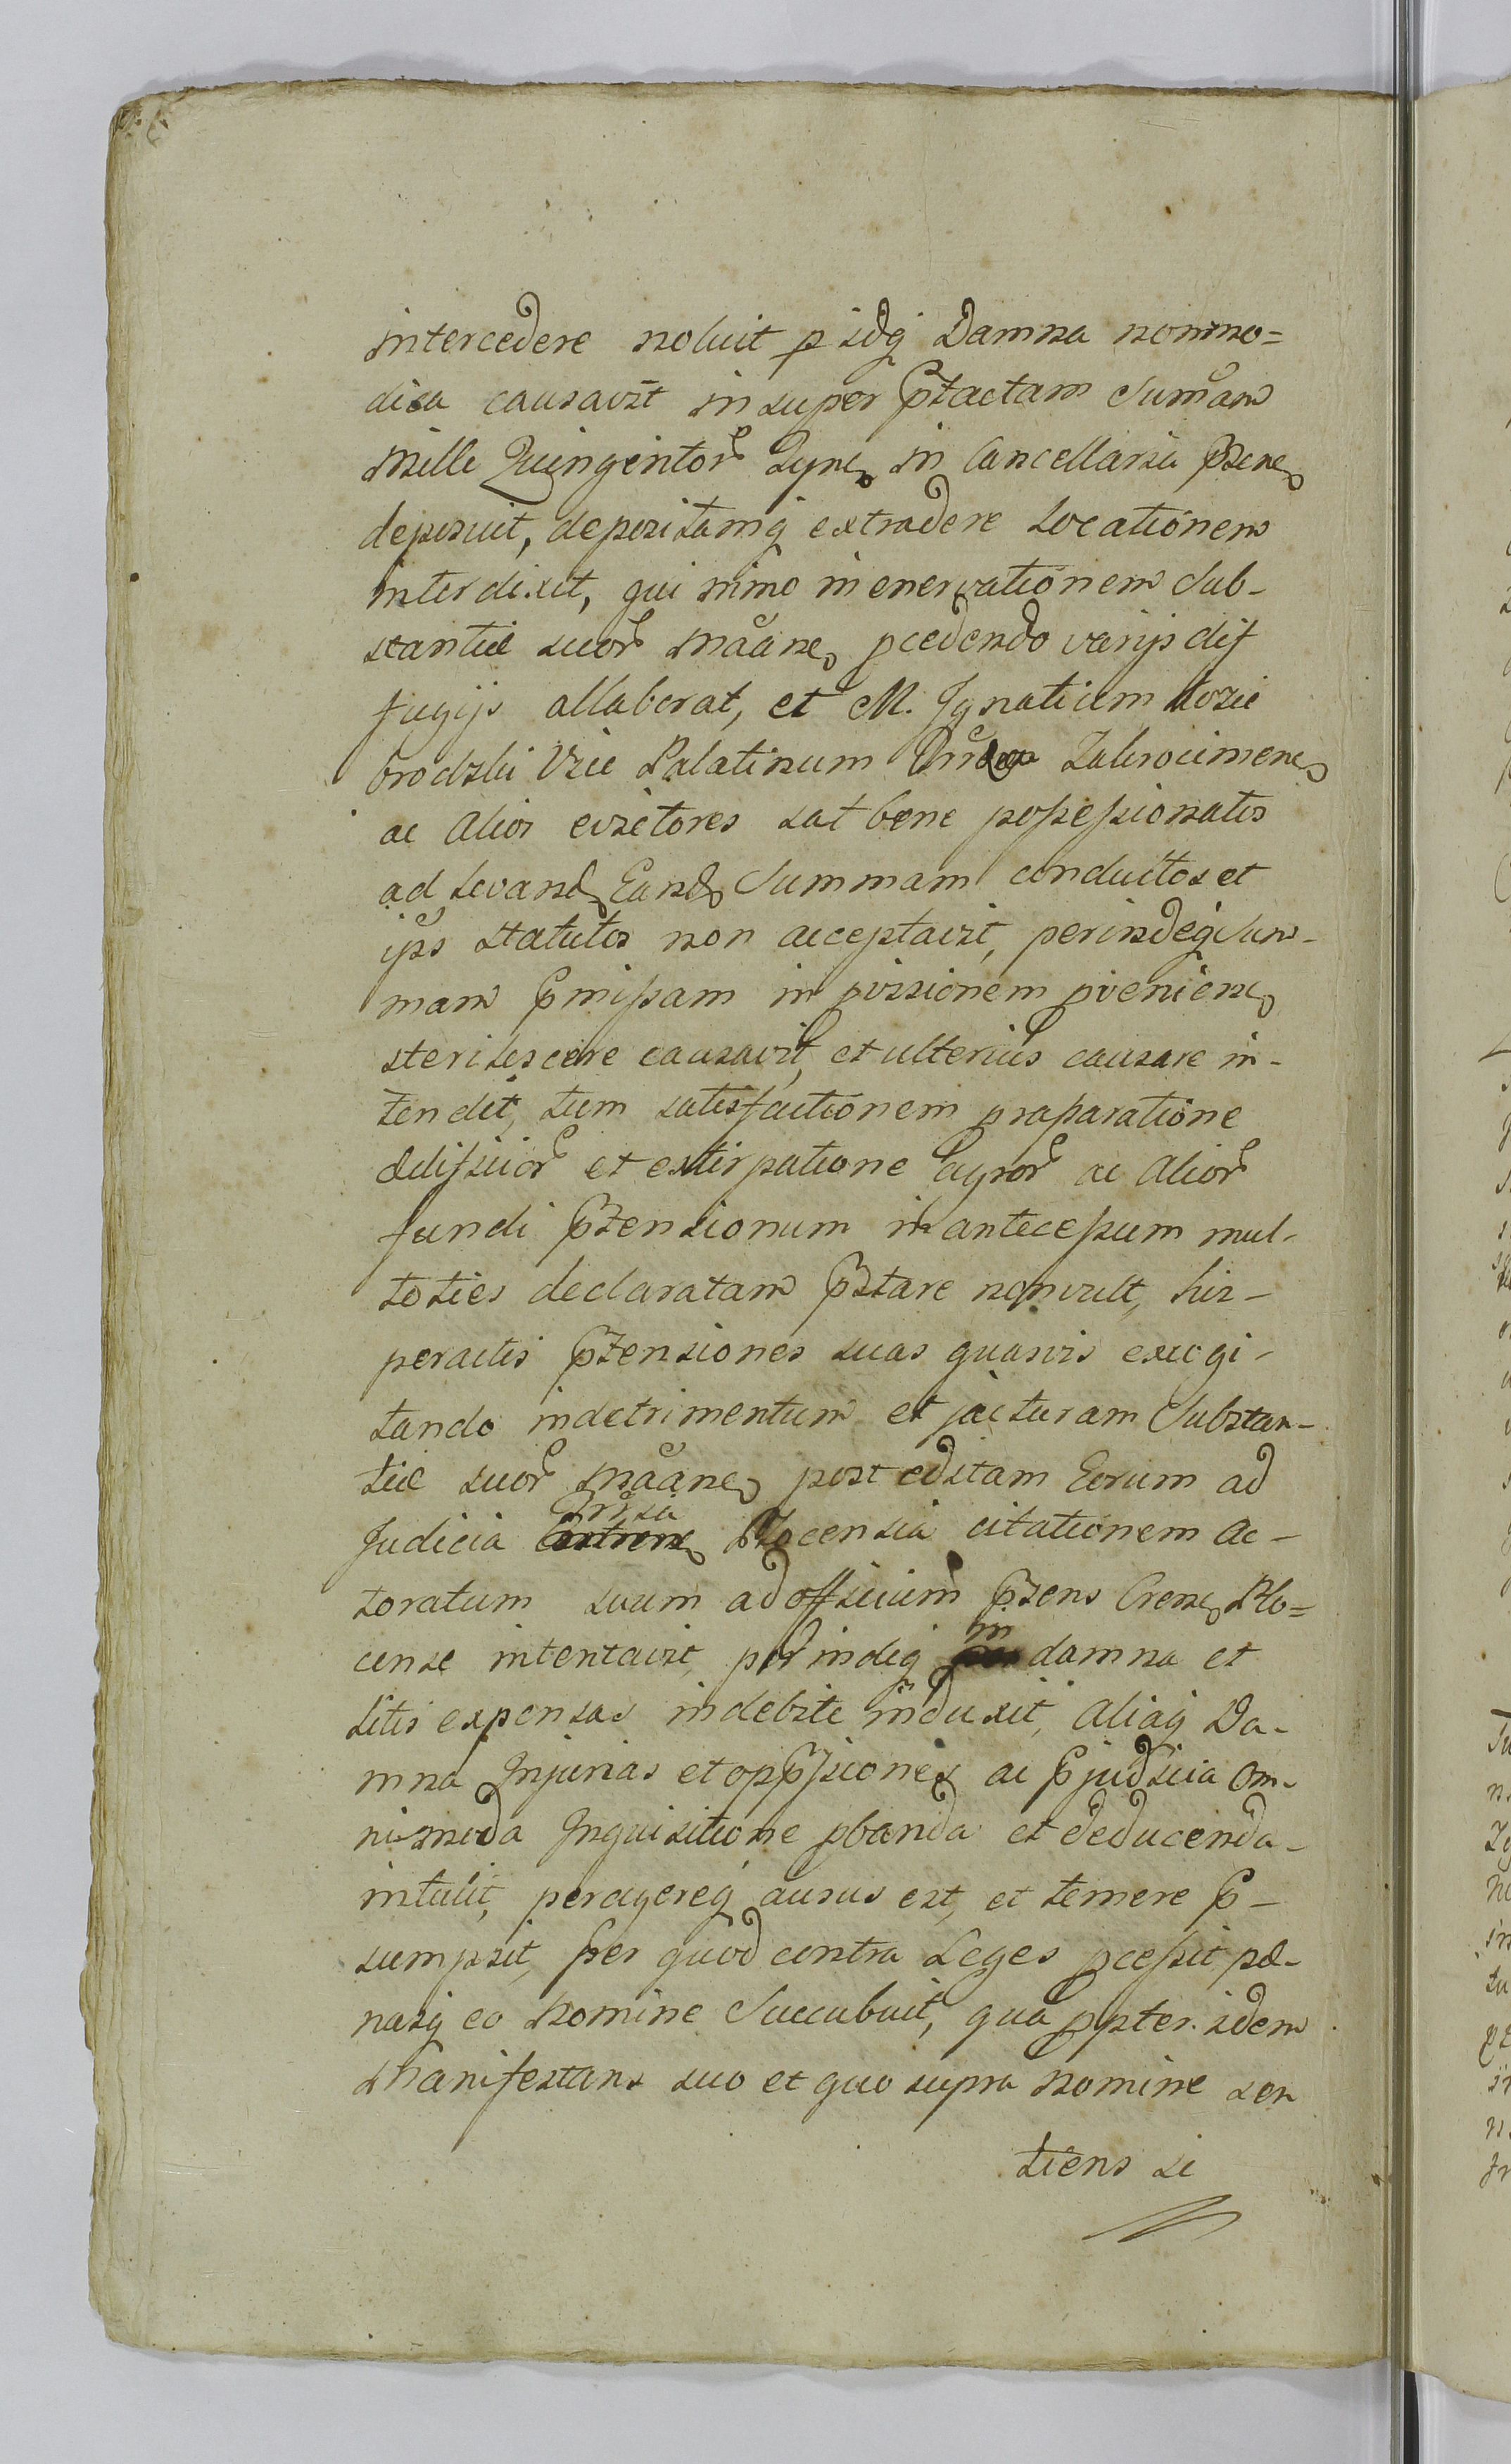 intercedere noluit p idq Damna nonmo=
dica causavit insuper Pstactam Sumam
Mille Quingentor in Cancellaria Psene
deposuit, depositamq extradere Locationem
interdixit, qui nimo in enervationem Sub-
stantiæ suor Mãane pcedendo varijs dif
fugijs allaborat, et M. Ignatium Kozie
brodzki Vice Palatinum Zakrocimens
ac Alios evictores sat bene possessionatos
ad Levand Eand Summam conductos et
ips statutos non acceptavit, perindeq Sum-
mam Pmissam in pvisionem pveniens
sterilescere causavit, et ulterius causare in-
tendit, tum satisfactionem praparatione
Ædificior et extirpatione agror ac Alior
fundi Ptensionum in antecessum mul-
toties declaratam Pstare non vult, his-
peractis Ptensiones suas quasvis excogi-
tando in detrimentum et jacturam Substan-
tiæ suor Mãane post editam Eorum ad
Judicia Plocensia citationem ac-
toratum suum ad officium Psens Crense Plo=
cense intentavit, perindeq in damna et
Litis expensas indebite induxit, Aliaq Da-
mna Injurias et oppssiones ac Pjudicia Om-
nimoda Inquisitione pbanda et deducenda-
intulit, peragereq ausus est, et temere P-
sumpsit, Per quod contra Leges pcessit, pæ-
nasq eo Nomine Succubuit, qua ppter idem
Manifestans suo et quo supra Nomine sen
tiens se